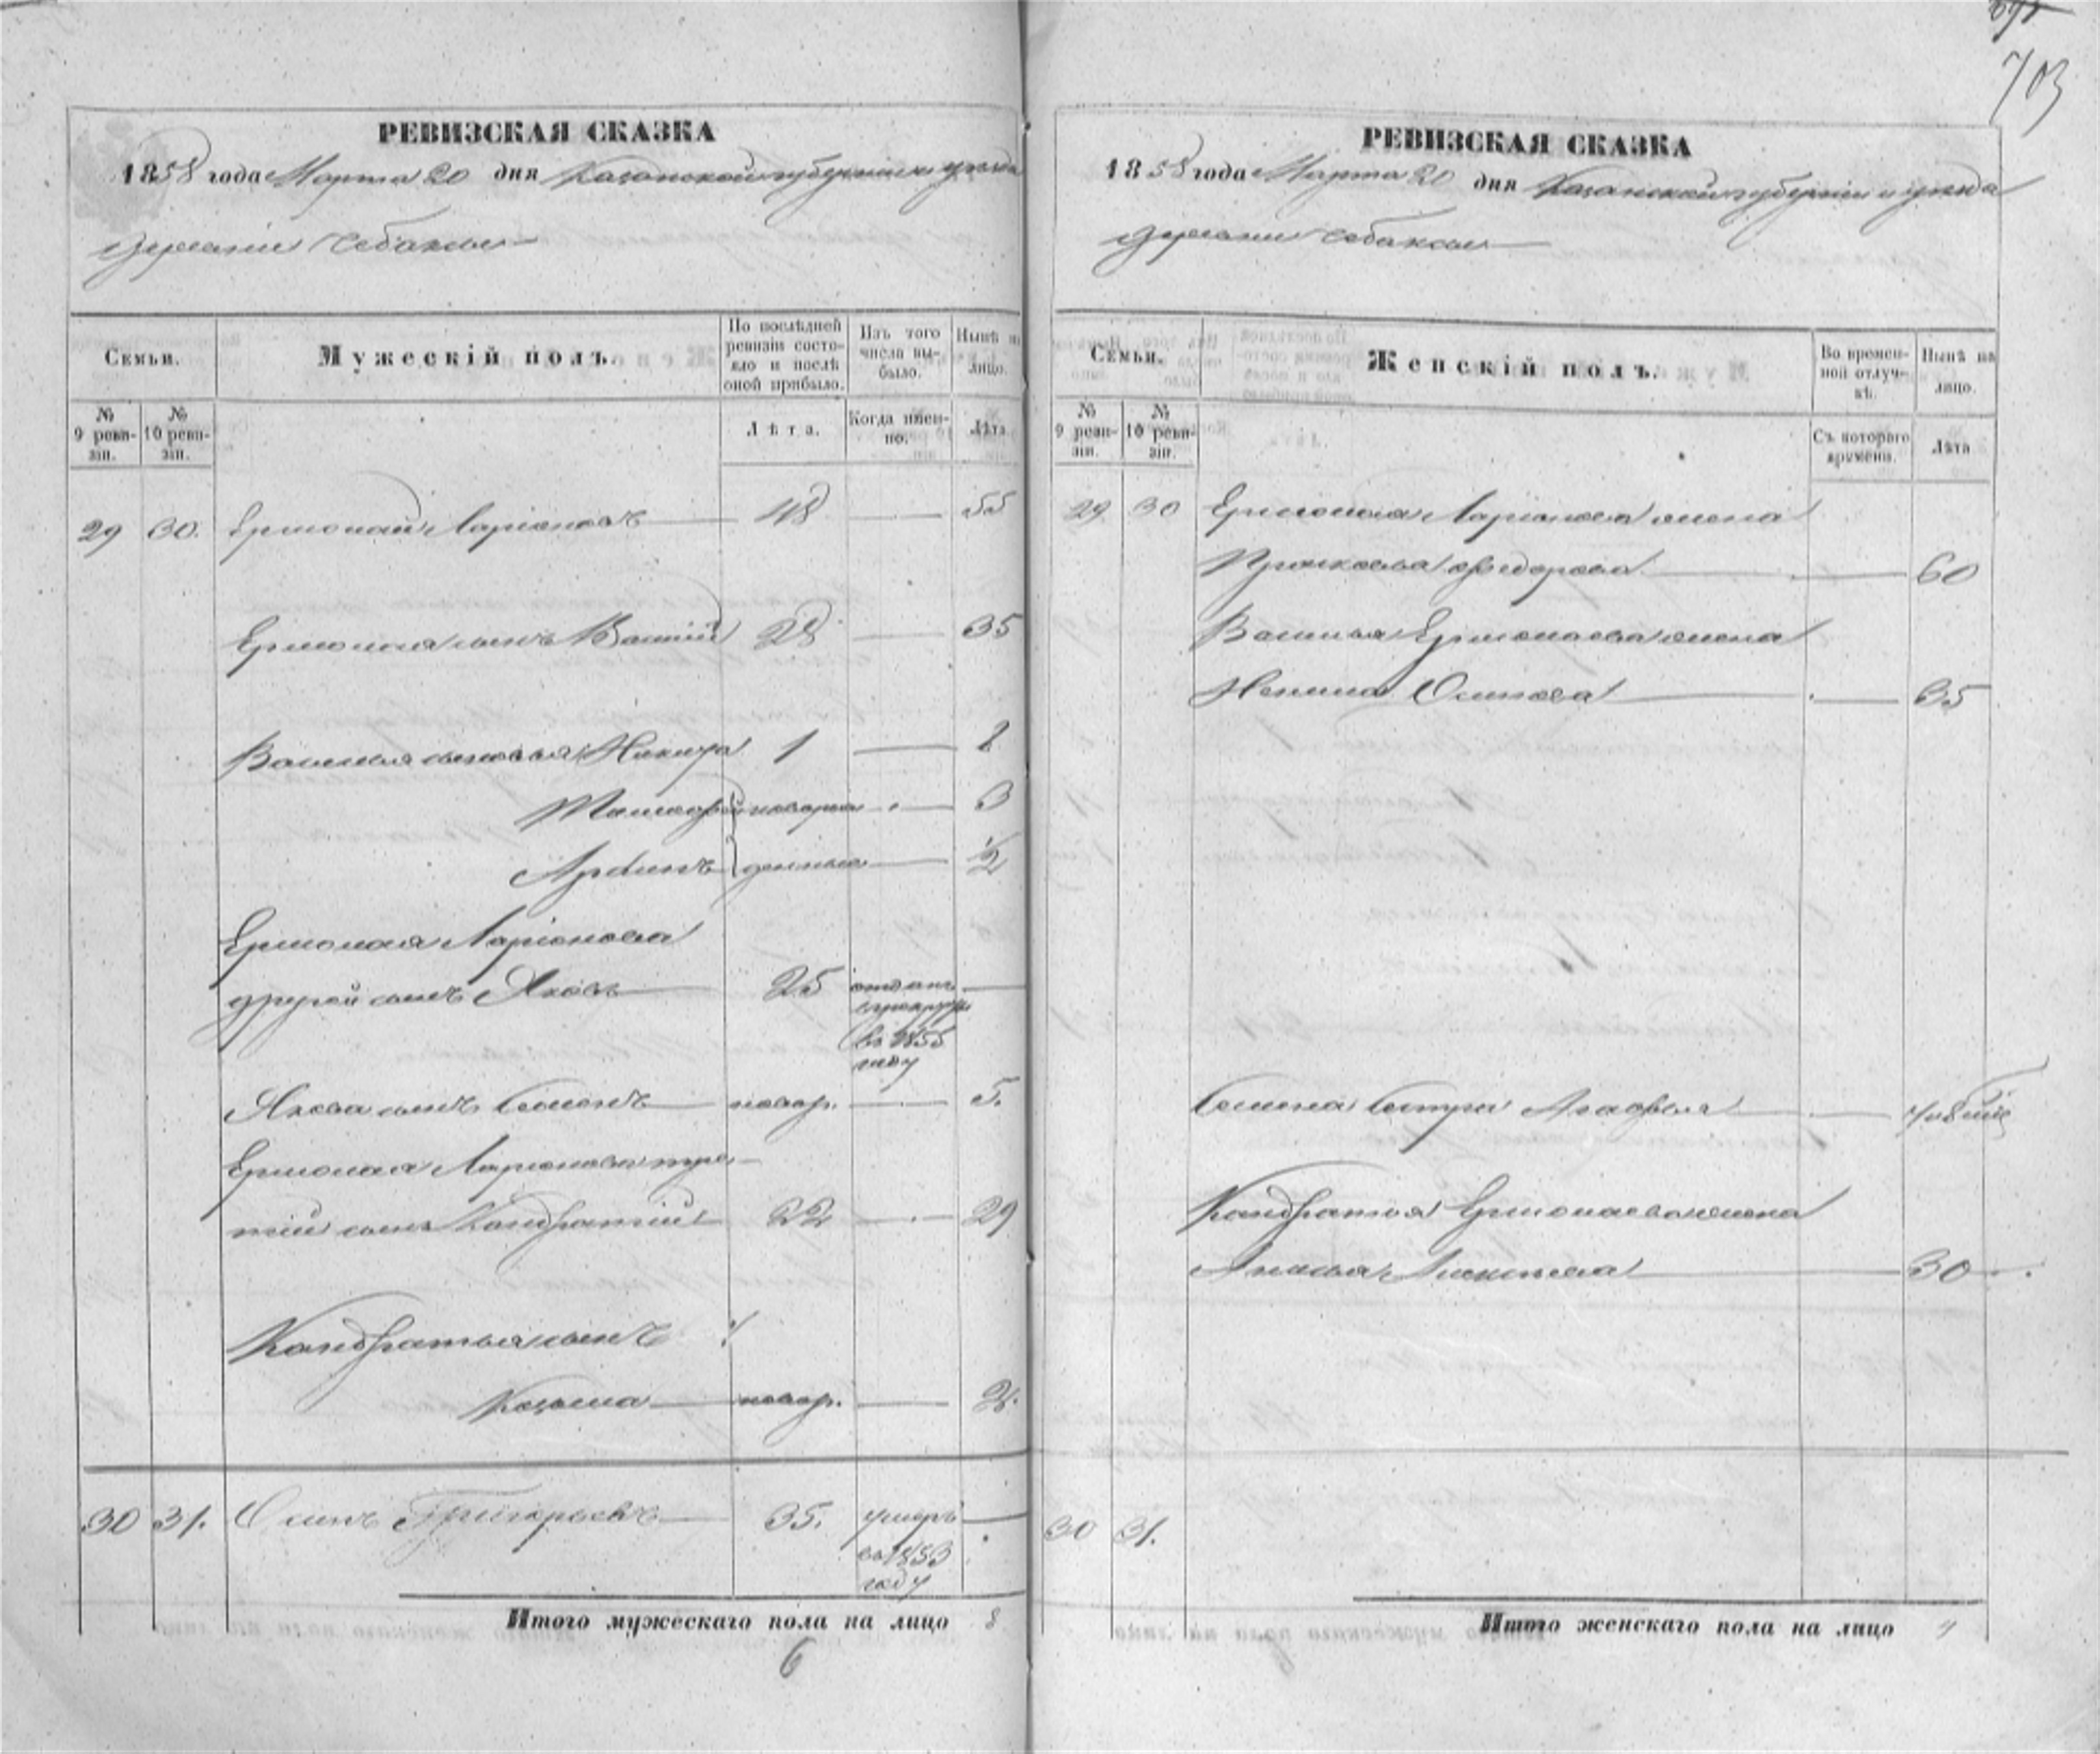 703
РЕВИЗСКАЯ СКАЗКА
1858 года Марта 20 дня Казанской губернии и уезда
деревни Собакиной
Семьи.
Мужескій полъ.
По послѣдней ревизіи состояло и послѣ оной прибыло.
Изъ того числа выбыло.
Нынѣ на лицо.
№ 9 ревизіи.
№ 10 ревизіи.
Лѣта.
Когда именно.
Лѣта
29 30. Ермолай Ларіоновъ 48 55
Ермолая сынъ Василій 28 35
Василья сыновья 1 8
новорож 3
денные 1/2
Ермолая Ларіонова
другой сынъ Яковъ 25 отданъ
въ рекруты
въ 1855
году
Якова сынъ Семенъ новор. 5.
Ермолая Ларіонова тре-
тій сынъ Кондратій 22 29
Кондратья сынъ
Козьма новор.
30 31. Осипъ Григорьевъ 35. умеръ
въ 1853
году
Итого мужескаго пола на лицо 8
6
РЕВИЗСКАЯ СКАЗКА
1858 года Марта 20 дня Казанской губерніи и уезда
деревни
Семьи.
Женскій полъ.
Во временной отлучкѣ.
Нынѣ на лицо.
№ 9 ревизіи.
№ 10 ревизіи.
Съ котораго времени.
Лѣта
29 30 Ермолая Ларіонова жена
Федорова 60
Василья Ермолаева жена
Осипова 35
Семена сестра Агафья
Кондратья Ермолаева жена
30
30 31.
Итого женскаго пола на лицо 4